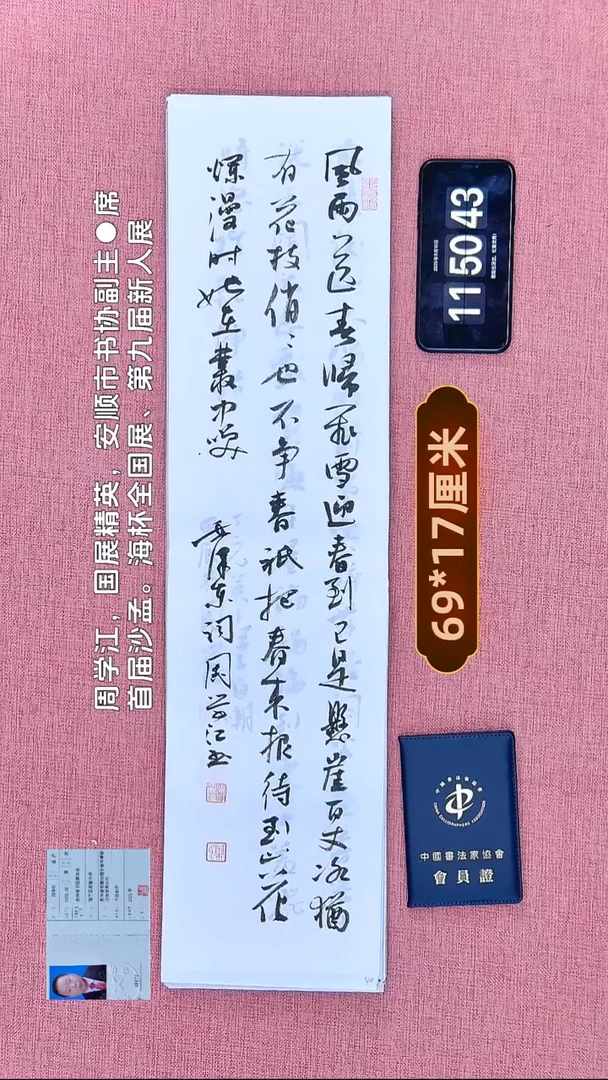 風雨送春歸飛雪迎春到已是懸崖百丈冰猶
有花枝俏俏也不争春祇把春来报待到山花
爛漫时她在叢中笑
毛泽东词 周学江书
周学江，国展精英，安顺市书协副主●席
首届沙孟。海杯全国展、第九届新人展
11 50 43
69*17厘米
中國書法家協會
CHINA CALLIGRAPHERS ASSOCIATION
中國書法家協會
會員證